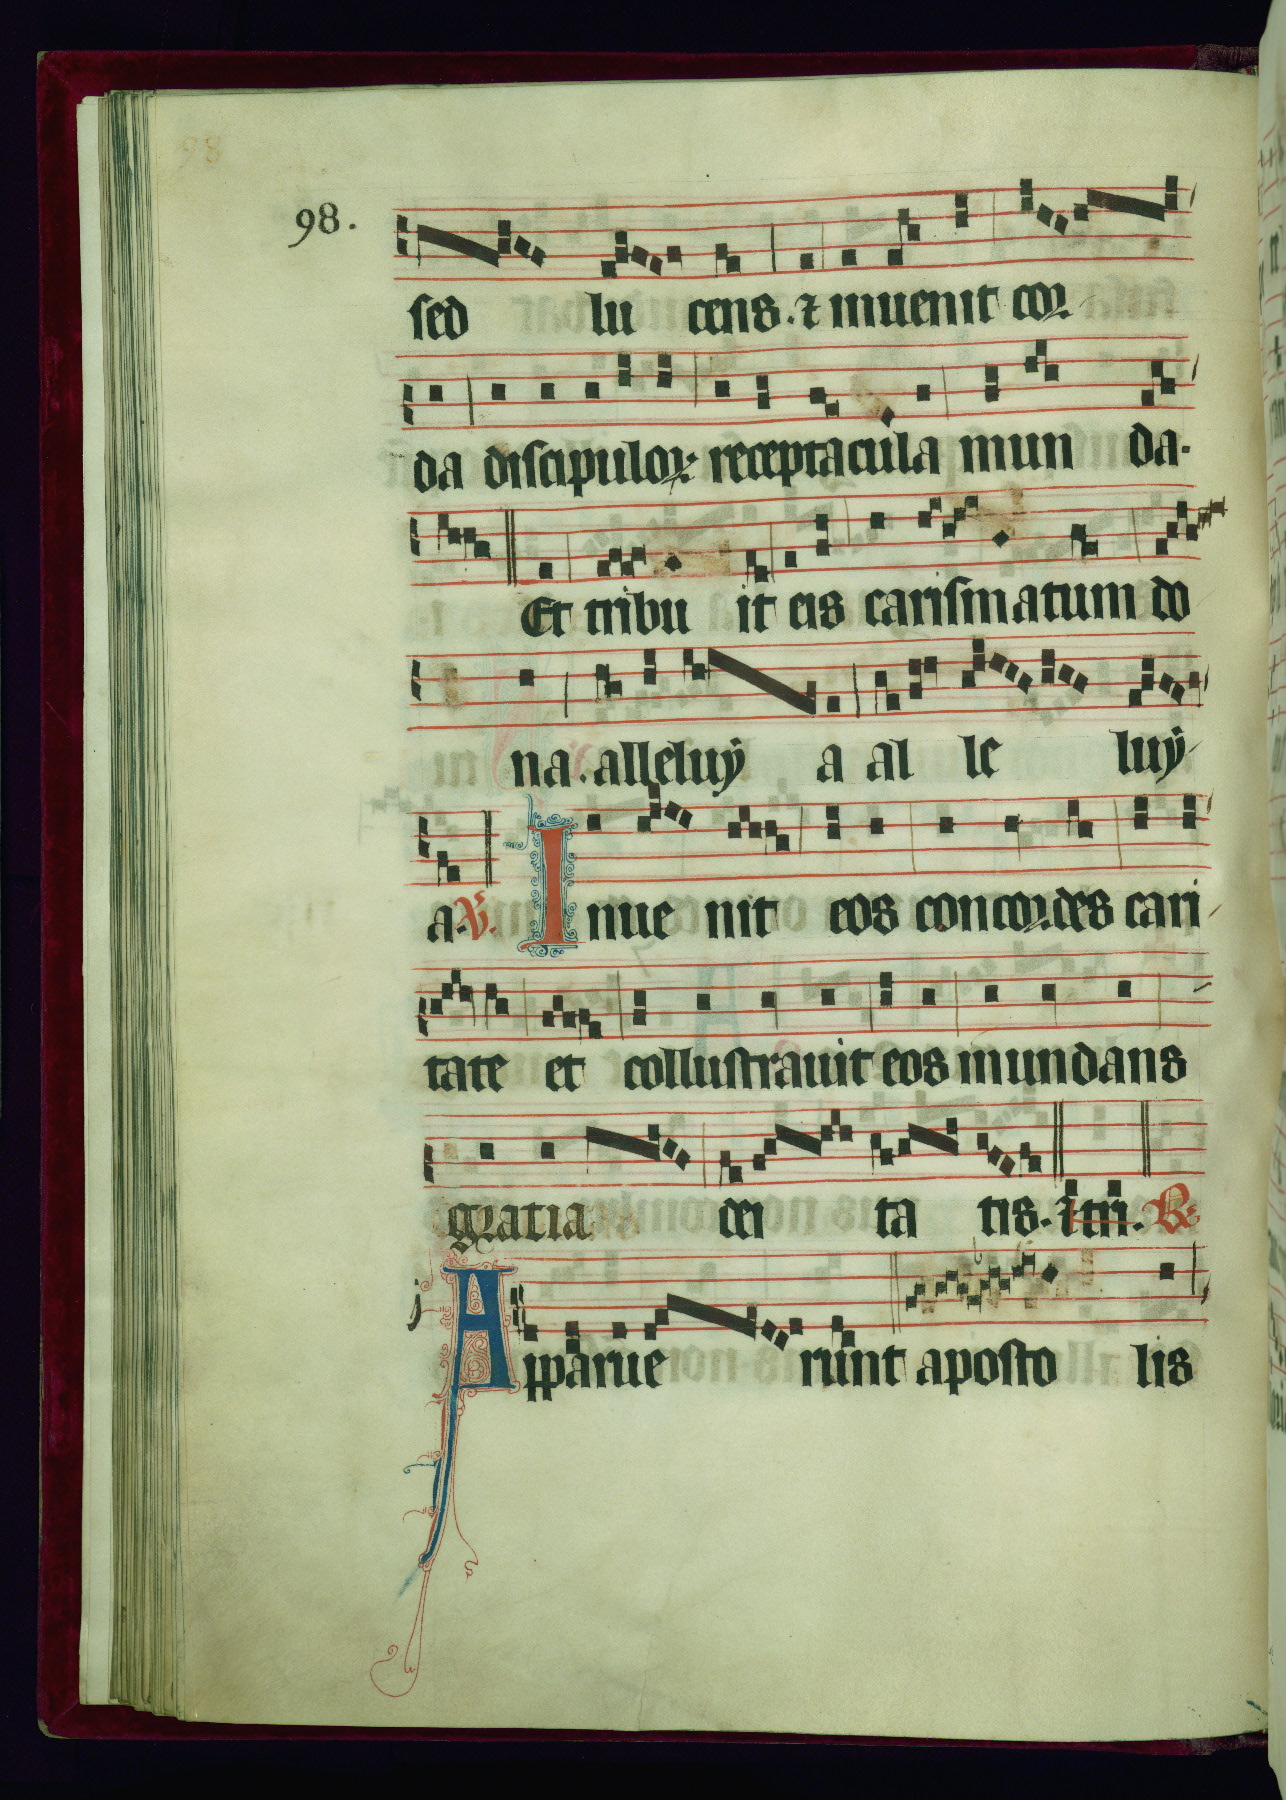 98
98.
sed lu cens. ⁊ inuenit cor
da discipuloꝝ receptacula mun da.
Et tribu it eis carismatum do
na. alleluÿ a al le luÿ
a. ℣. Inue nit eos concordes cari
tate et collustrauit eos mundans
gratia dei ta tis. ⁊ tri. ℞
Apparue runt aposto lis